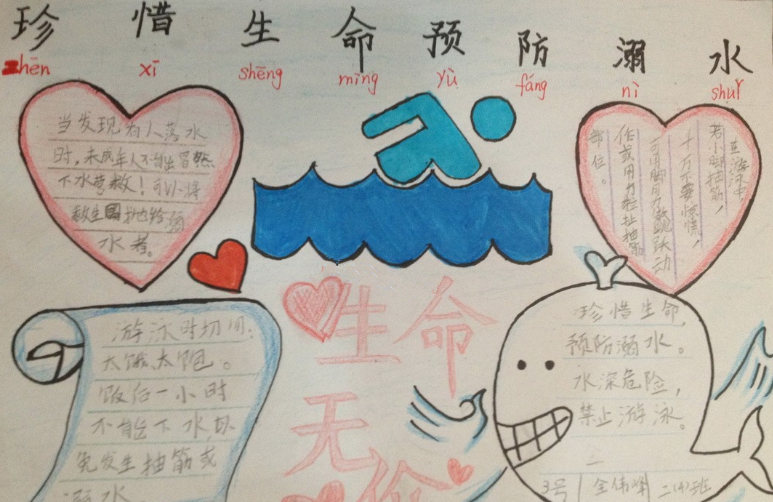 珍惜生命预防溺水
zhēn xī shēng mìng yù fáng nì shuǐ
当发现为人落水
时，未成年人不能冒然
下水营救！可以将
救生圈抛给溺
水者。
在游泳中
若小脚抽筋！
千万不要惊慌！
可用脚用力蹬跳跃动
作或用力拉扯抽筋
部位。
游泳时切同
太饿太饱。
饭后一小时
不能下水，以
免发生抽筋或
溺水
生命
无价
珍惜生命
预防溺水。
水深危险，
禁止游泳。
3号 金伟峰 二(4)班